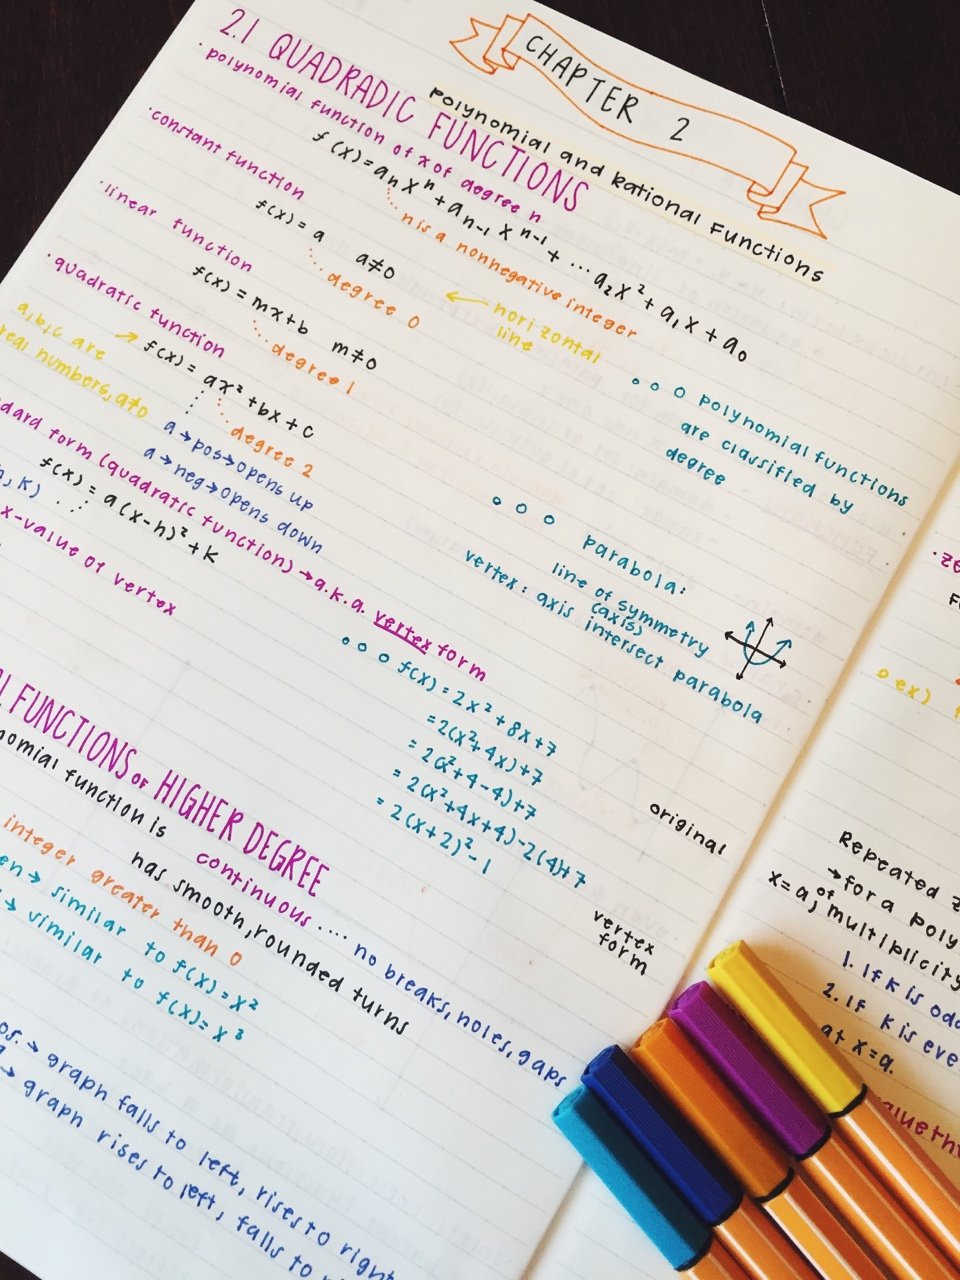 CHAPTER 2
Polynomial and Rational Functions
2.1 QUADRADIC FUNCTIONS
·polynomial function of x of degree n
f(x)=aₙxⁿ+aₙ₋₁xⁿ⁻¹+...a₂x²+a₁x+a₀
n is a nonnegative integer
·constant function
f(x)=a a≠0
degree 0
← horizontal
line
·linear function
f(x)=mx+b m≠0
degree 1
polynomial functions
are classified by
degree
·quadratic function
f(x)=ax²+bx+c
a,b,c are →
real numbers, a≠0
degree 2
a→pos→opens up
a→neg→opens down
parabola:
line of symmetry
(axis)
vertex: axis intersect parabola
dard form (quadratic function)→a.k.a. vertex form
f(x)=a(x-h)²+k
h,k)
x-value of vertex
f(x)=2x²+8x+7
=2(x²+4x)+7
=2(x²+4-4)+7
=2(x²+4x+4)-2(4)+7
=2(x+2)²-1
original
vertex
form
L FUNCTIONS OF HIGHER DEGREE
nomial function is continuous.... no breaks, holes, gaps
has smooth, rounded turns
integer greater than 0
en→ similar to f(x)=x²
→ similar to f(x)=x³
os.→ graph falls to left, rises to right
→ graph rises to left, falls to
·ze
ex)
Repeated z
→for a poly
x=a, of multiplicity
1. If k is odd
2. If k is eve
at x=a.
alue th